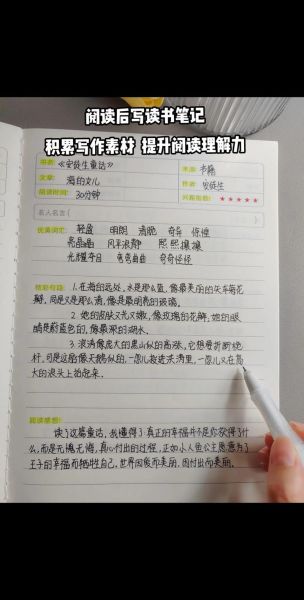 阅读后写读书笔记
积累写作素材 提升阅读理解力
书名: 《安徒生童话》 来源: 书籍
文章: 海的女儿 作者: 安徒生
阅读时间: 30分钟 兴趣指数: ★★★★★
名人名言(
优美词汇: 轻盈 明朗 清脆 奇异
亮晶晶 风平浪静 熙熙攘攘
光耀夺目 弯弯曲曲 奇奇怪怪
精彩句段: 1.在海的远处,水是那么蓝,像最美丽的矢车菊花
瓣,同是又是那么清,像是最明亮的玻璃。
2. 她的皮肤又光又嫩,像玫瑰的花瓣,她的眼
睛是蔚蓝色的,像最深的湖水。
3. 浪涛像庞大的黑山似的高涨,它想要折断桅
杆,可是这船像天鹅似的,一忽儿投进洪涛里,一忽儿又在高
大的浪头上抬起来。
阅读感想:
读了这篇童话,我懂得了真正的幸福并不是你获得了什
么,而是无愧无悔,真心付出的过程,正如小人鱼公主愿意为了
王子的幸福而牺牲自己,世界因爱而美丽,因付出而美丽。